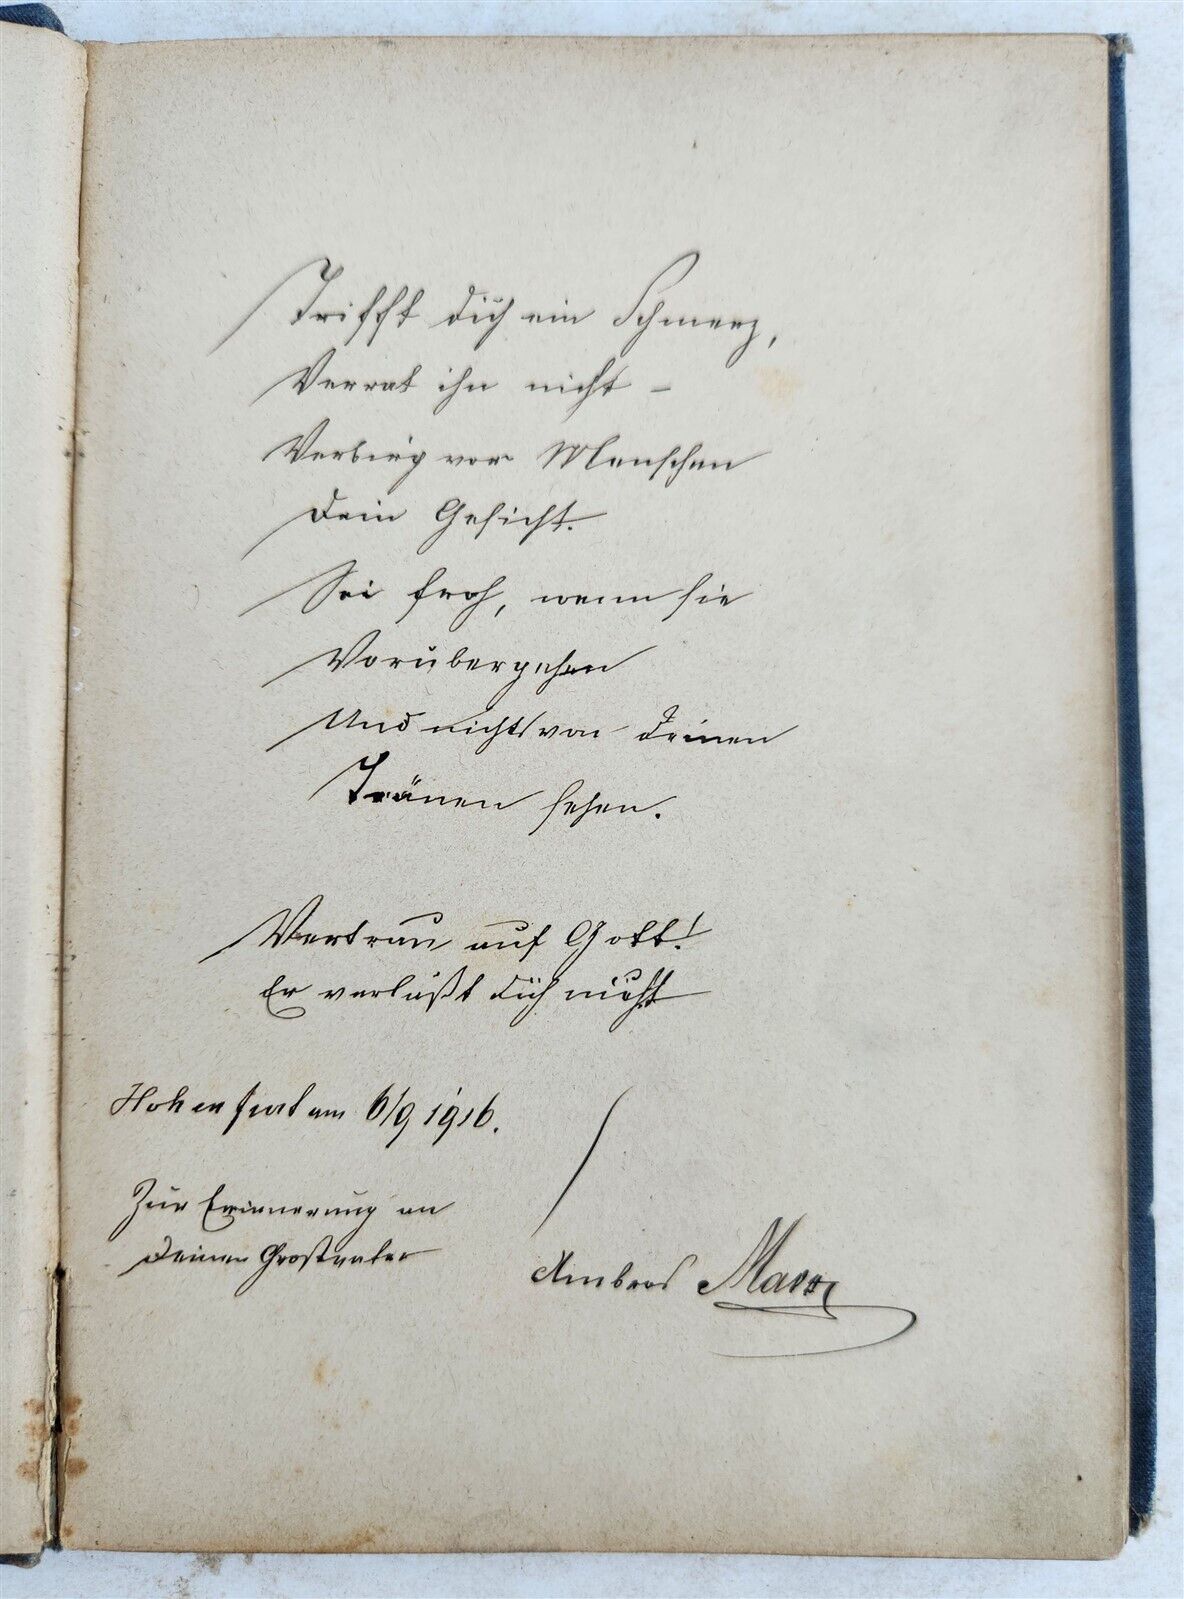 Trifft dich ein Schmerz,
Verrat ihn nicht –
Verbirg vor Menschen
Dein Gesicht.
Sei froh, wenn sie
Vorübergehen
Und nichts von Deinen
Tränen sehen.
Vertrau auf Gott!
Er verläßt dich nicht
Hohenfurt am 6/9 1916.
Zur Erinnerung an
Deinen Großvater
Ambros